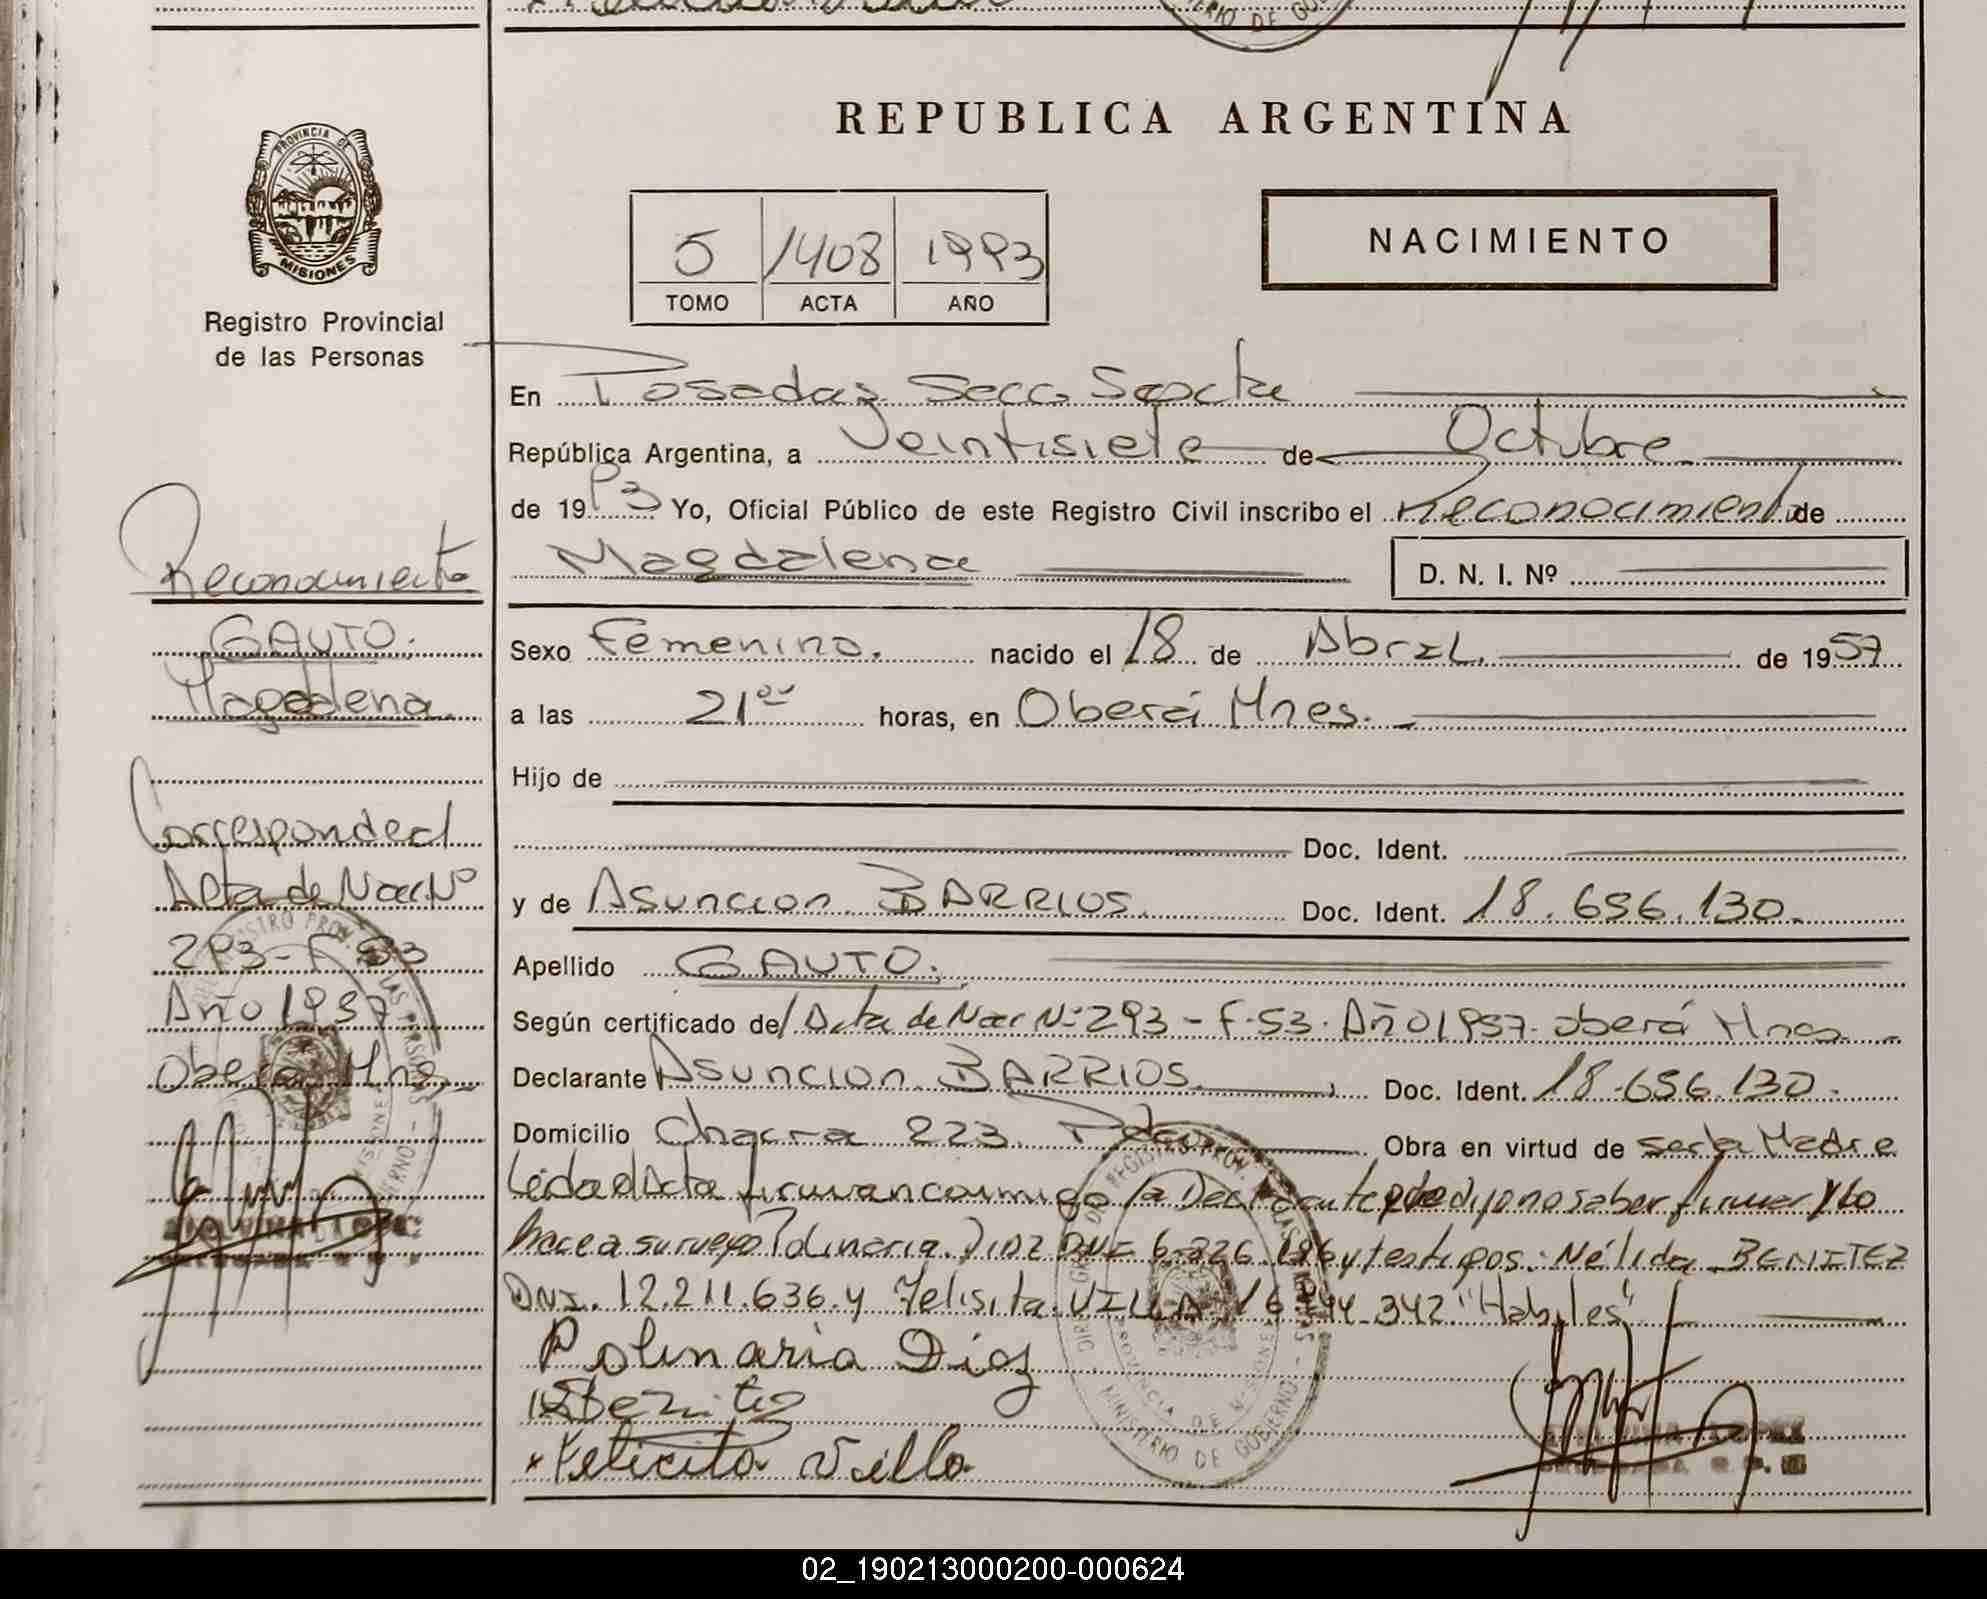 REPUBLICA ARGENTINA
PROVINCIA DE
MISIONES
Registro Provincial
de las Personas
5 1408 1993
TOMO ACTA AÑO
NACIMIENTO
En Posadas Secc Sexta
República Argentina, a Veintisiete de Octubre
de 1993 Yo, Oficial Público de este Registro Civil inscribo el Reconocimiento de
Magdalena D. N. I. Nº
Sexo Femenino. nacido el 18 de Abril. de 1957
a las 21 horas, en Oberá Mnes.
Hijo de
Doc. Ident.
y de Asuncion BARRIOS. Doc. Ident. 18.656.130.
Apellido GAUTO.
Según certificado de Acta de Nac Nº 293-F-53. Año 1957. Oberá Mnes
Declarante Asuncion BARRIOS. Doc. Ident. 18.656.130.
Domicilio Chacra 223. Pdas. Obra en virtud de ser la Madre
Leída el Acta firman conmigo la Declarante que dijo no saber firmar y lo
hace a su ruego Polinaria Diaz DNI 6.226. y testigos: Nélida BENITEZ
DNI. 12.211.636. y Felisita VILLA 342. "Habiles"
Polinaria Diaz
Benitez
Felicita Villa
Reconocimiento
GAUTO.
Magdalena.
Corresponde al
Acta de Nac Nº
293-F-53
Año 1957
Oberá Mnes
DIREC. GRAL. DE REGISTRO PROV. DE LAS PERSONAS
PROVINCIA DE MISIONES
MINISTERIO DE GOBIERNO
02_190213000200-000624